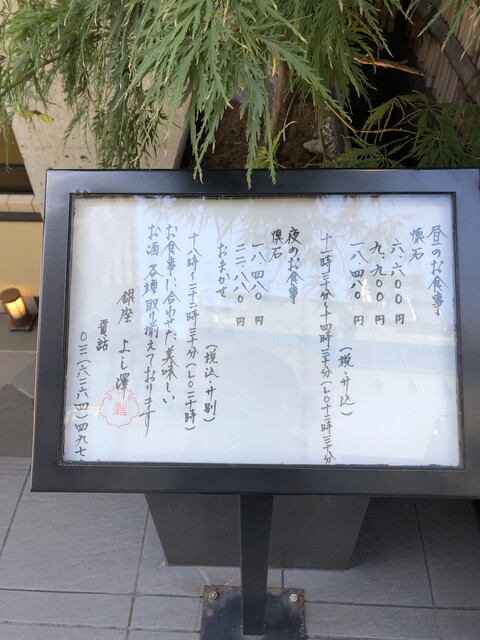 昼のお食事
懐石
六、六〇〇円
九、九〇〇円
一八、四八〇円
(税・サ込)
十一時三十分〜十四時三十分(L.O十三時三十分)
夜のお食事
懐石
一八、四八〇円
おまかせ
(税込・サ別)
十八時〜二十二時三十分(L.O二十時)
お食事に合わせた美味しい
お酒各種取り揃えております
銀座 よし澤
電話